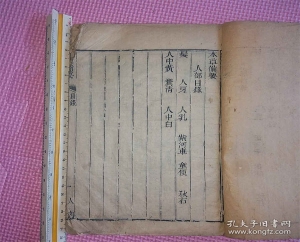 本草備要
人部目錄
髮 人牙 人乳 紫河車 童便 秋石
人中黃 糞清 人中白
目錄
孔夫子旧书网